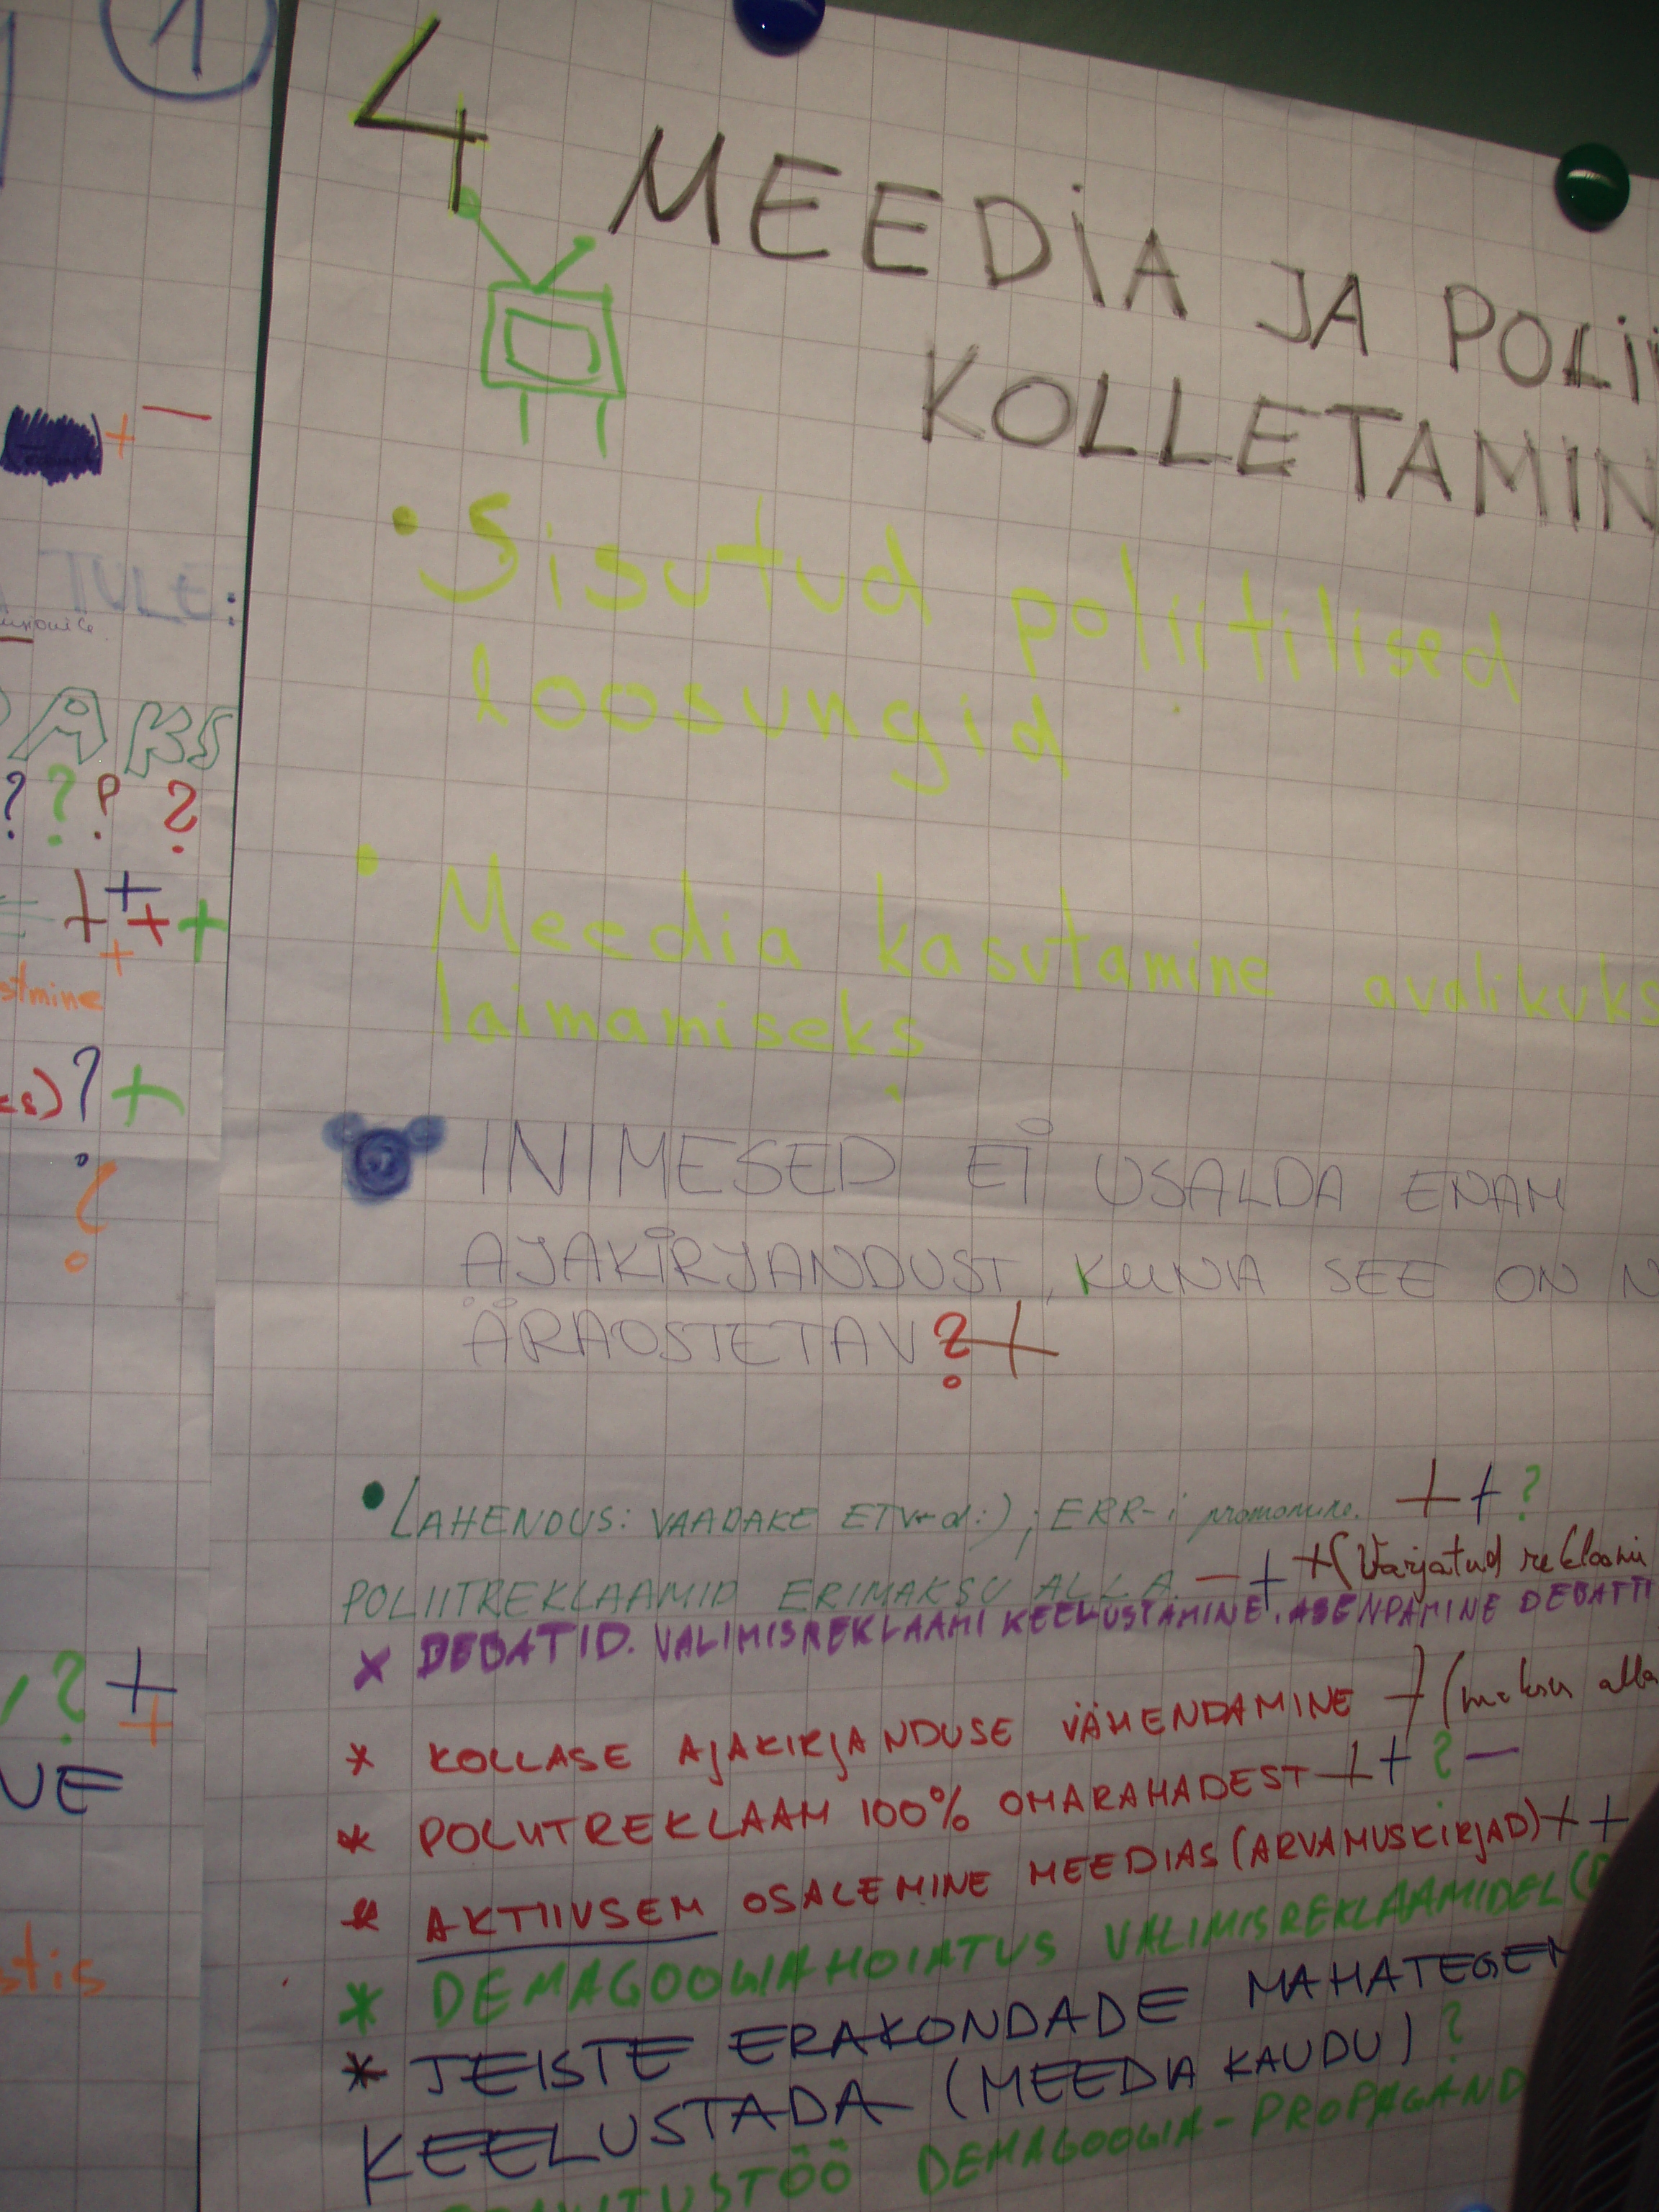 1
TULE:
AKS
? ? ? ?
+ + + +
stmine
? +
?
? +
stis
4 MEEDIA JA POLII
KOLLETAMIN
• Sisutud poliitilised
loosungid
• Meedia kasutamine avalikuks
laimamiseks
INIMESED EI USALDA ENAM
AJAKIRJANDUST, KUNA SEE ON N
ÄRAOSTETAV ? +
• LAHENDUS: VAADAKE ETV-d:) ; ERR-i promomine. + + ?
POLIITREKLAAMID ERIMAKSU ALLA. - + +(Varjatud reklaami
x DEBATID. VALIMISREKLAAMI KEELUSTAMINE. ASENDAMINE DEBATTI
* KOLLASE AJAKIRJANDUSE VÄHENDAMINE + (maksu alla
* POLIITREKLAAM 100% OMARAHADEST + + ? -
* AKTIIVSEM OSALEMINE MEEDIAS (ARVAMUSKIRJAD) + +
* DEMAGOOGIAHOIATUS VALIMISREKLAAMIDEL (
* TEISTE ERAKONDADE MAHATEGEM
KEELUSTADA (MEEDIA KAUDU) ?
DEMAGOOGIA-PROPAGAND